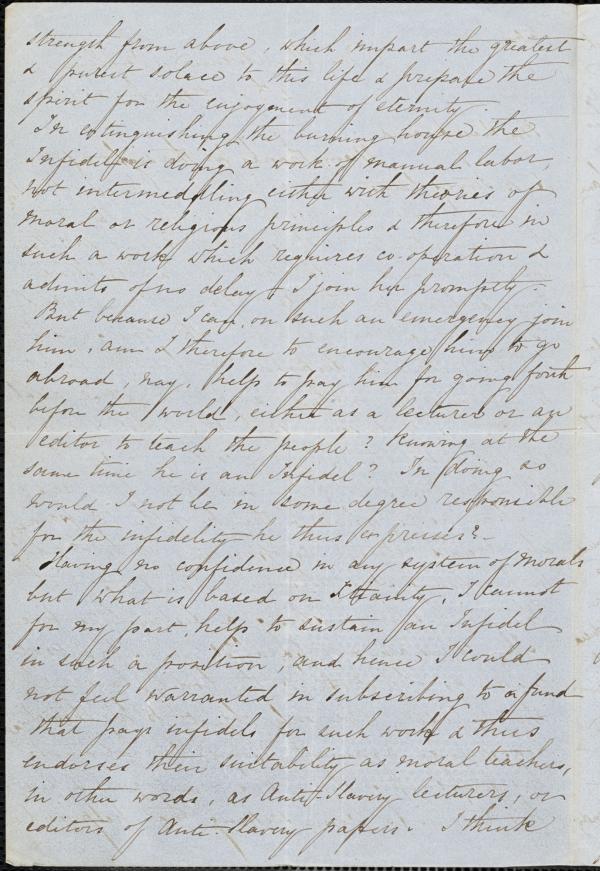 strength from above, which impart the greatest
& purest solace to this life & prepare the
spirit for the enjoyment of eternity.
In extinguishing the burning house the
Infidel is doing a work of manual labor,
not intermeddling either with theories of
moral or religious principles & therefore in
such a work which requires co-operation &
admits of no delay I join him promptly.
But because I can, on such an emergency join
him, am I therefore to encourage him to go
abroad, nay, help to pay him for going forth
before the world, either as a lecturer or an
editor to teach the people? Knowing at the
same time he is an Infidel? In doing so
would I not be in some degree responsible
for the infidelity he thus expresses?
Having no confidence in any system of morals
but what is based on Xtianity, I cannot
for my part, help to sustain an Infidel
in such a position, and hence I could
not feel warranted in subscribing to a fund
that pays infidels for such work & thus
endorses their suitability as moral teachers,
in other words, as Anti-Slavery lecturers, or
editors of Anti-Slavery papers. I think